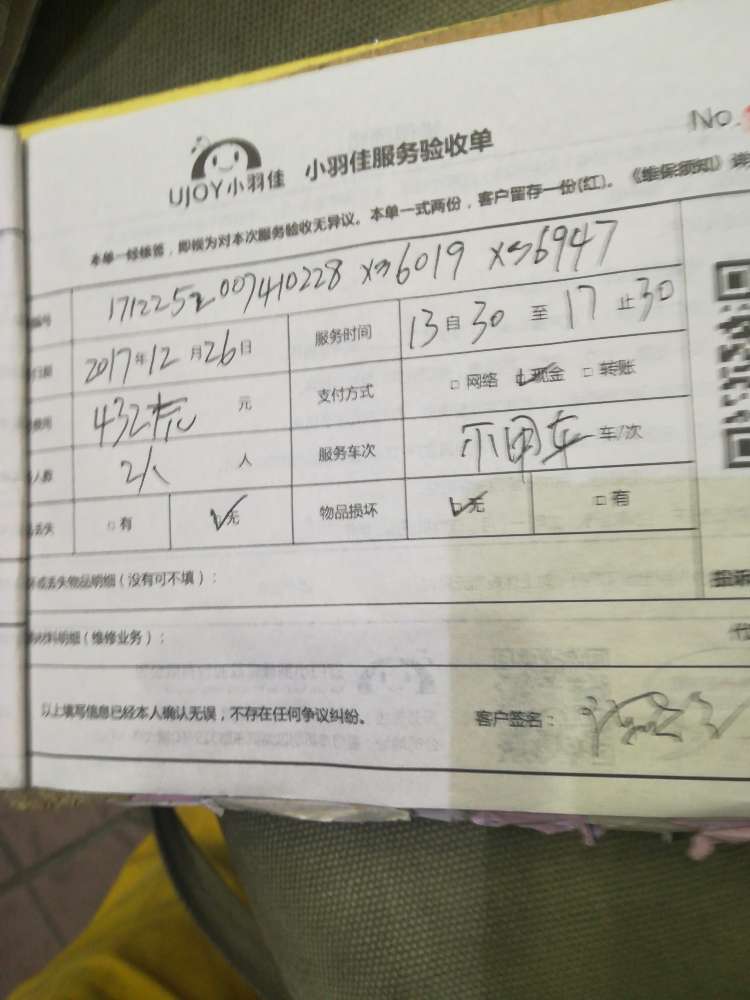 No.
UJOY小羽佳 小羽佳服务验收单
本单一经签署，即视为对本次服务验收无异议。本单一式两份，客户留存一份(红)。《维保须知》
编号 1712252007410228 xs6019 xs6947
日期 2017年12月26日 服务时间 13自30至17止30
费用 432元 元 支付方式 □网络 ☑现金 □转账
人数 2人 人 服务车次 不用车 车/次
丢失 □有 ☑无 物品损坏 ☑无 □有
丢失物品明细（没有可不填）：
材料明细（维修业务）：
以上填写信息已经本人确认无误，不存在任何争议纠纷。 客户签名：